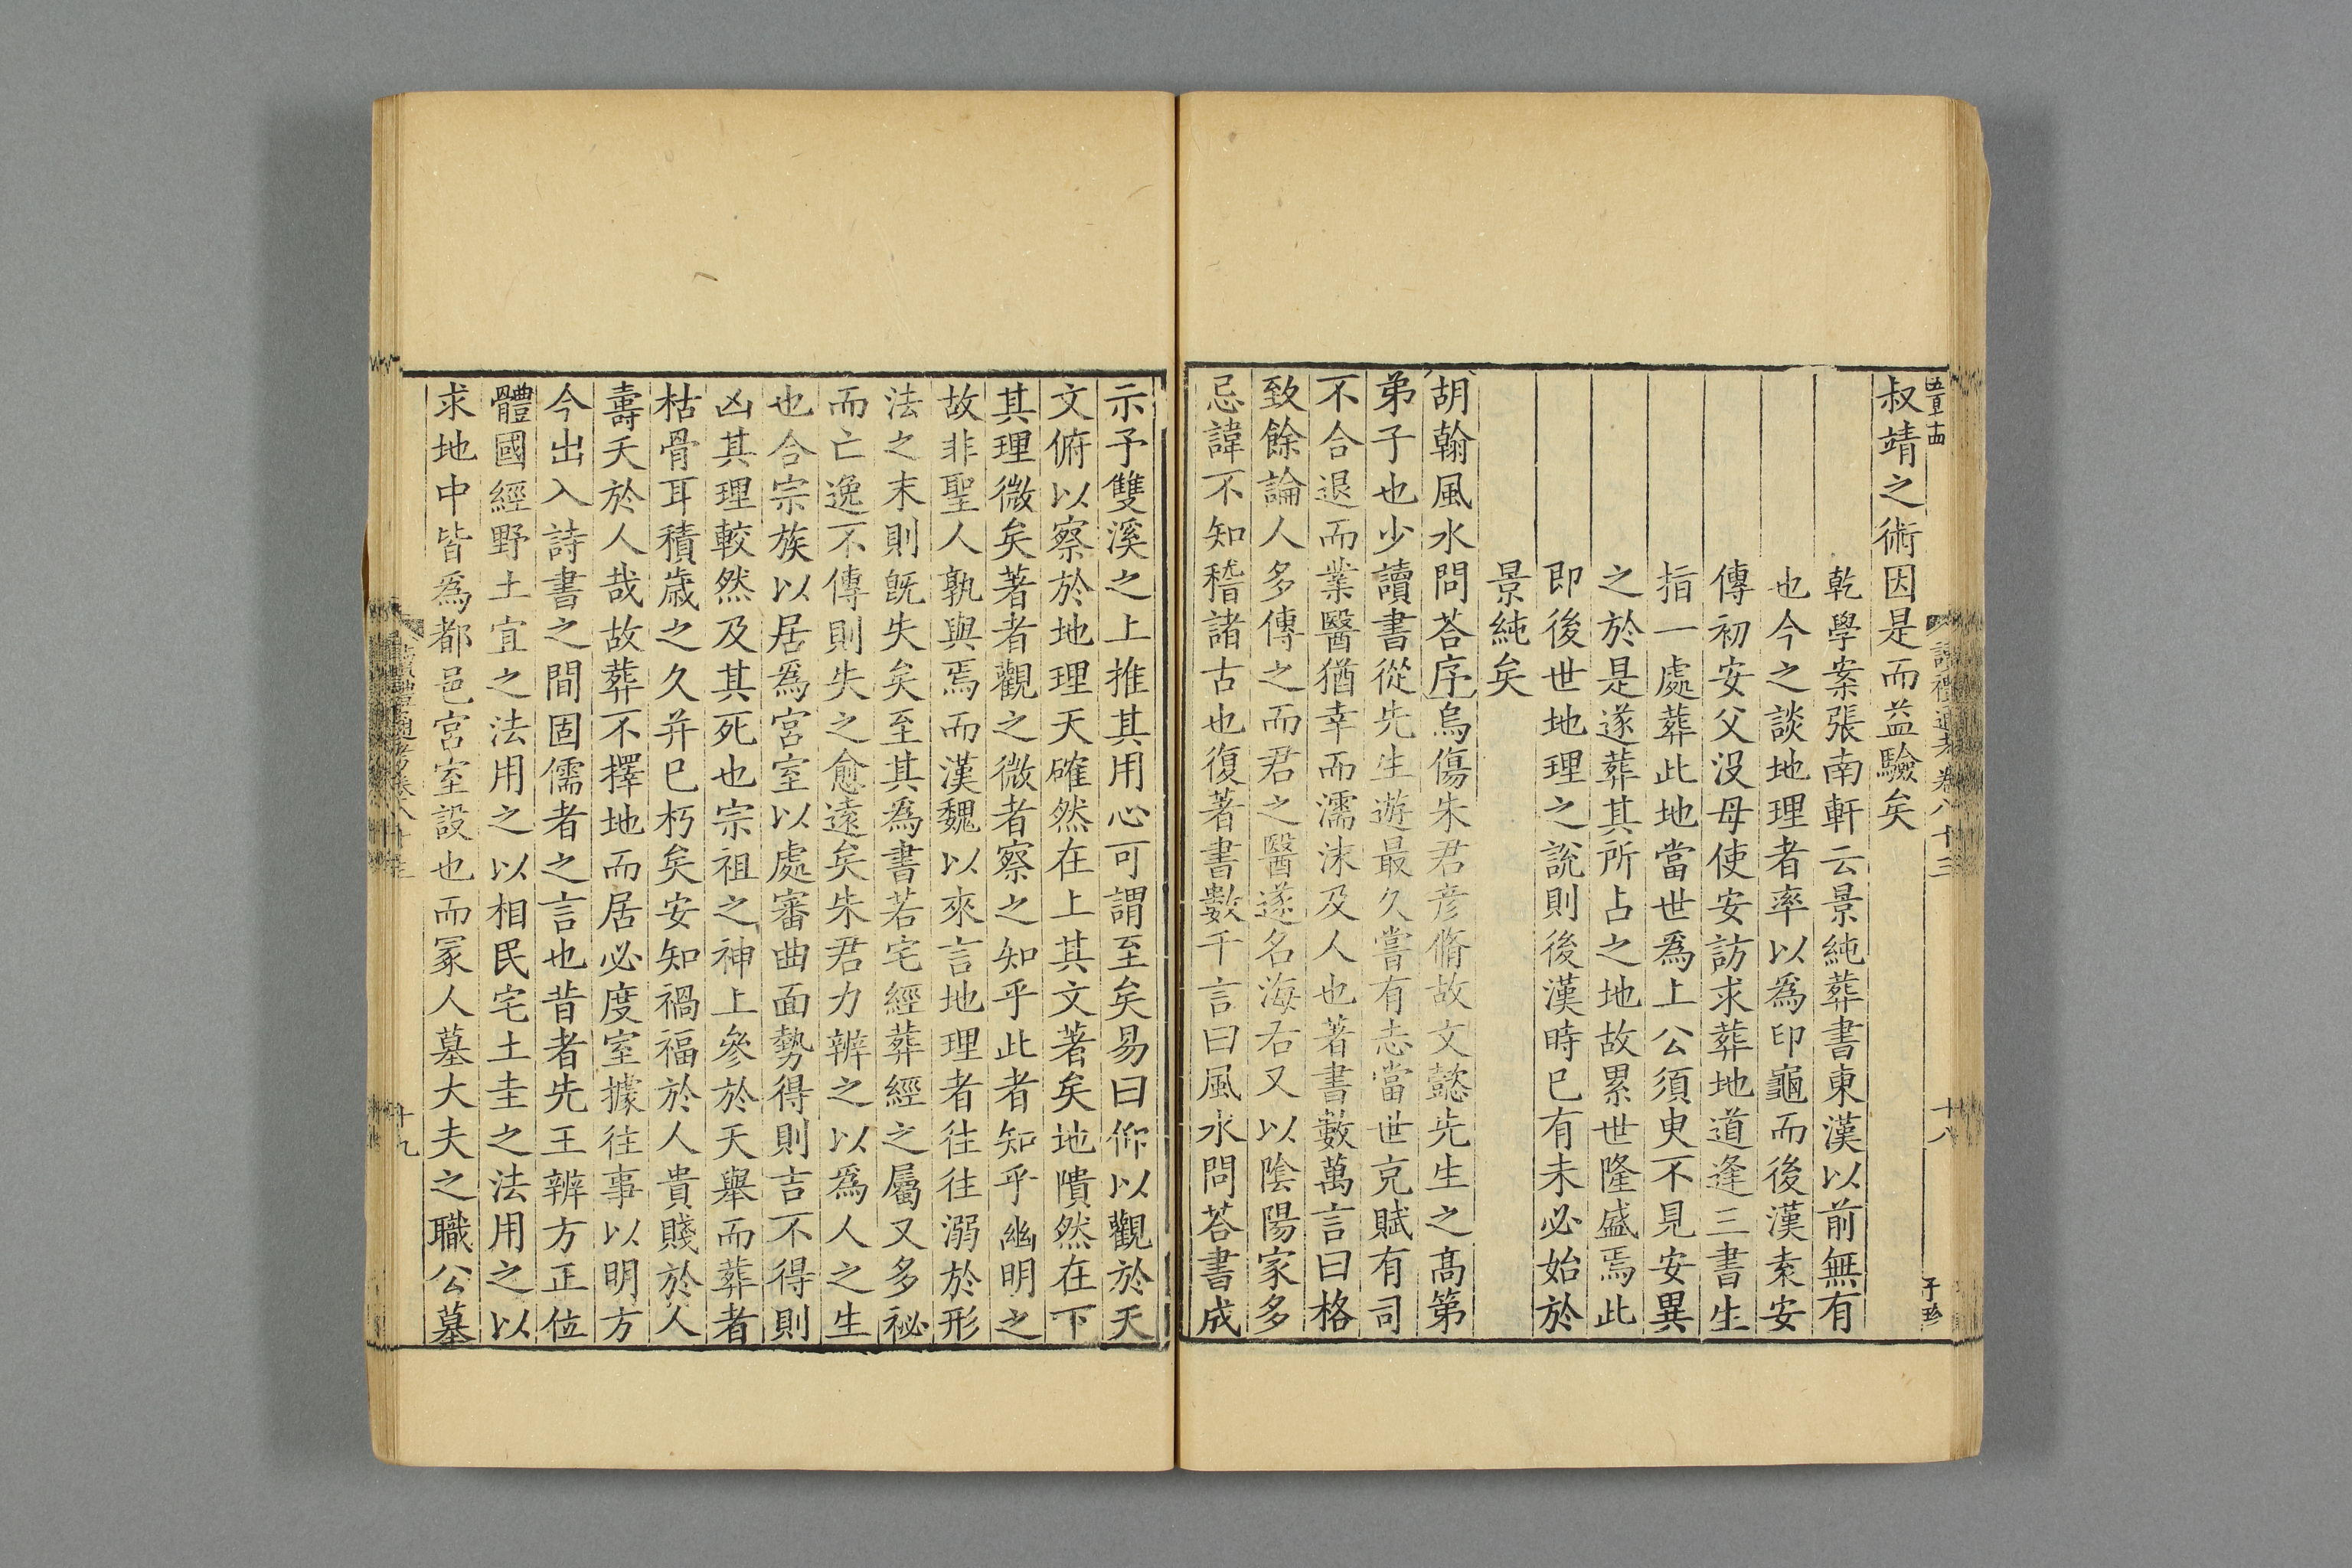 叔靖之術因是而益驗矣
乾學案張南軒云景純葬書東漢以前無有
也今之談地理者率以為印龜而後漢袁安
傳初安父没母使安訪求葬地道逢三書生
指一處葬此地當世爲上公須臾不見安異
之於是遂葬其所占之地故累世隆盛焉此
即後世地理之說則後漢時已有未必始於
景純矣
胡翰風水問荅序烏傷朱君彦脩故文懿先生之髙第
弟子也少讀書從先生遊最久嘗有志當世充賦有司
不合退而業醫猶幸而濡沫及人也著書數萬言曰格
致餘論人多傳之而君之醫遂名海右又以陰陽家多
忌諱不知稽諸古也復著書數千言曰風水問荅書成
讀禮通考卷八十三
十八
子珍
示予雙溪之上推其用心可謂至矣易曰仰以觀於天
文俯以察於地理天確然在上其文著矣地隤然在下
其理微矣著者觀之微者察之知乎此者知乎幽明之
故非聖人孰與焉而漢魏以來言地理者往往溺於形
法之末則旣失矣至其爲書若宅經葬經之屬又多祕
而亡逸不傳則失之愈遠矣朱君力辨之以爲人之生
也合宗族以居爲宮室以處審曲面勢得則吉不得則
凶其理較然及其死也宗祖之神上參於天舉而葬者
枯骨耳積歲之久并已朽矣安知禍福於人貴賤於人
壽夭於人哉故葬不擇地而居必度室據往事以明方
今出入詩書之間固儒者之言也昔者先王辨方正位
體國經野土宜之法用之以相民宅土圭之法用之以
求地中皆爲都邑宮室設也而冢人墓大夫之職公墓
讀禮通考卷八十三
十九